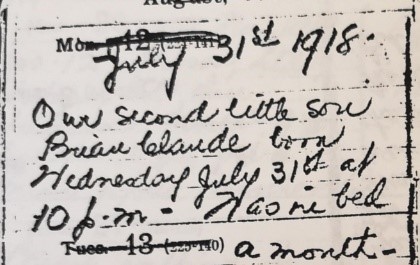 August,
Mon. 12 (224-141)
July 31st 1918.
Our second little son
Brian Claude born
Wednesday July 31st at
10 p.m - Was in bed
Tues. 13 (225-140) a month -